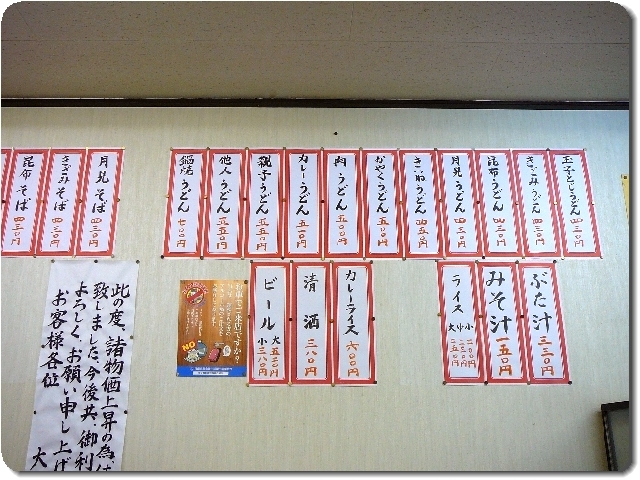 玉子とじうどん 四三〇円
きざみうどん 四三〇円
昆布うどん 四三〇円
月見うどん 四三〇円
きつねうどん 四五〇円
かやくうどん 五〇〇円
肉うどん 五〇〇円
カレーうどん 五一〇円
親子うどん 五五〇円
他人うどん 五五〇円
鍋焼うどん 七〇〇円
月見そば 四三〇円
きざみそば 四三〇円
昆布そば 四三〇円
ぶた汁 三三〇円
みそ汁 一五〇円
ライス
カレーライス 六〇〇円
清酒 三八〇円
ビール 大 五二〇円
小 三八〇円
お車でご来店ですか?
NO
此の度、諸物価上昇の為
致しました。今後共、御利
よろしくお願い申し上げ
お客様各位
大